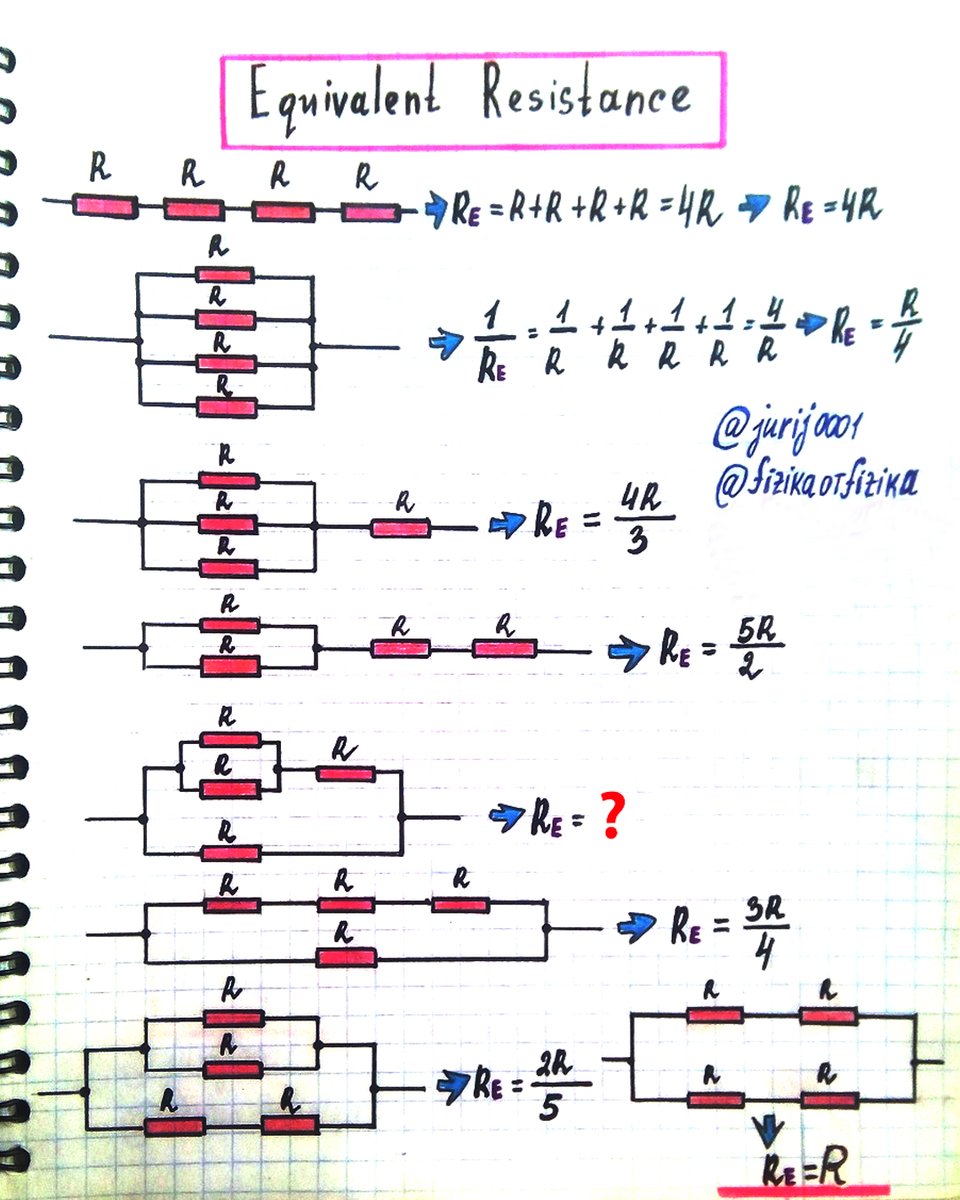 Equivalent Resistance
R R R R
RE = R+R+R+R = 4R RE = 4R
R
R
R
R
1/RE = 1/R + 1/R + 1/R + 1/R = 4/R RE = R/4
@jurij0001
@fizikaoтfizika
R
R
R
R
RE = 4R/3
R
R
R R
RE = 5R/2
R
R
R
R
RE = ?
R R R
R
RE = 3R/4
R
R
R R
RE = 2R/5
R R
R R
RE = R